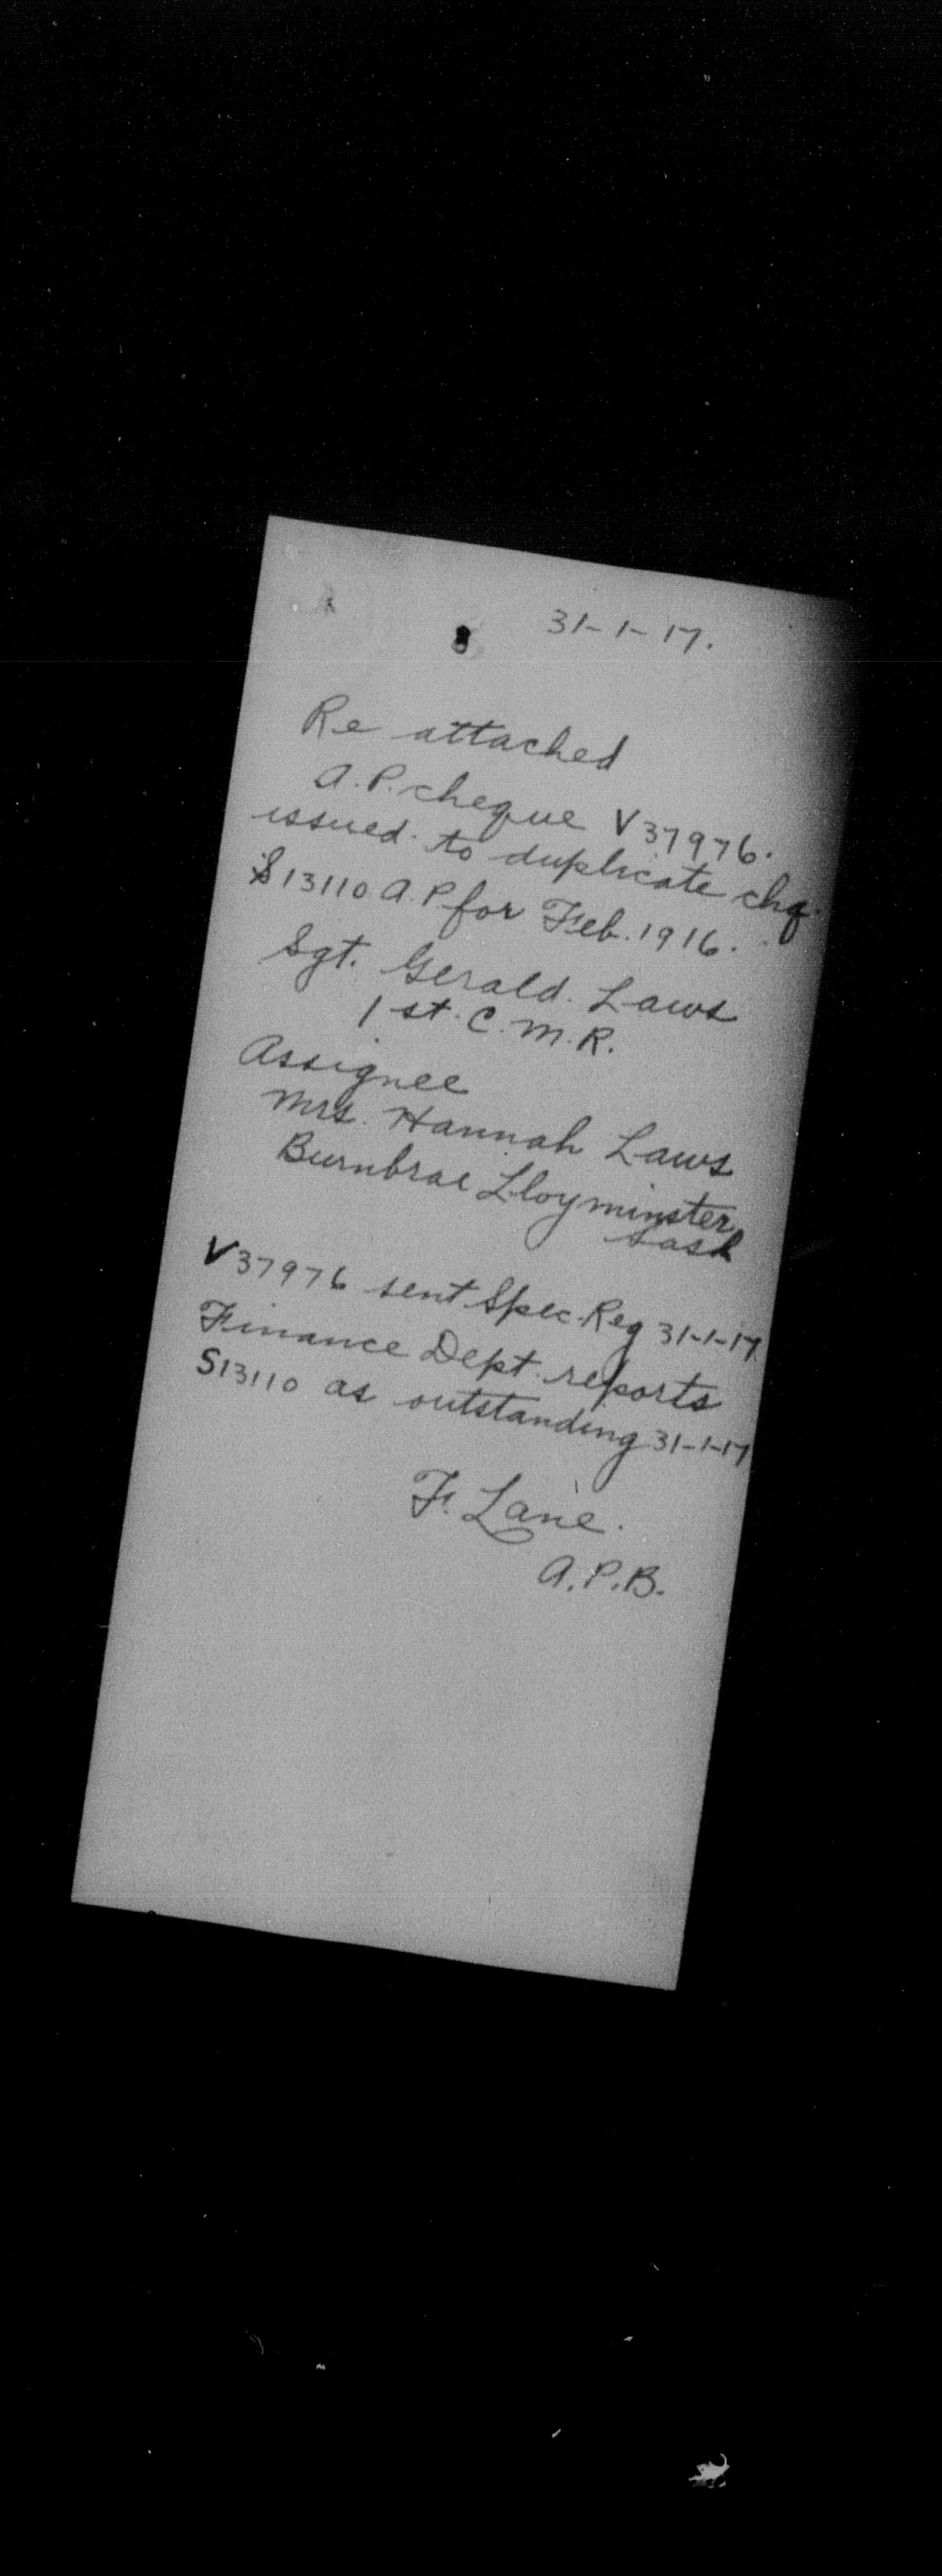 31-1-17.
Re attached
A.P. cheque V37976.
issued to duplicate chq.
S13110 A.P. for Feb. 1916.
Sgt. Gerald Laws
1st. C.M.R.
Assignee
Mrs. Hannah Laws
Burnbrae Lloyminster,
Sask
V37976 sent Spec. Reg 31-1-17.
Finance Dept. reports
S13110 as outstanding 31-1-17
F. Lane.
A.P.B.